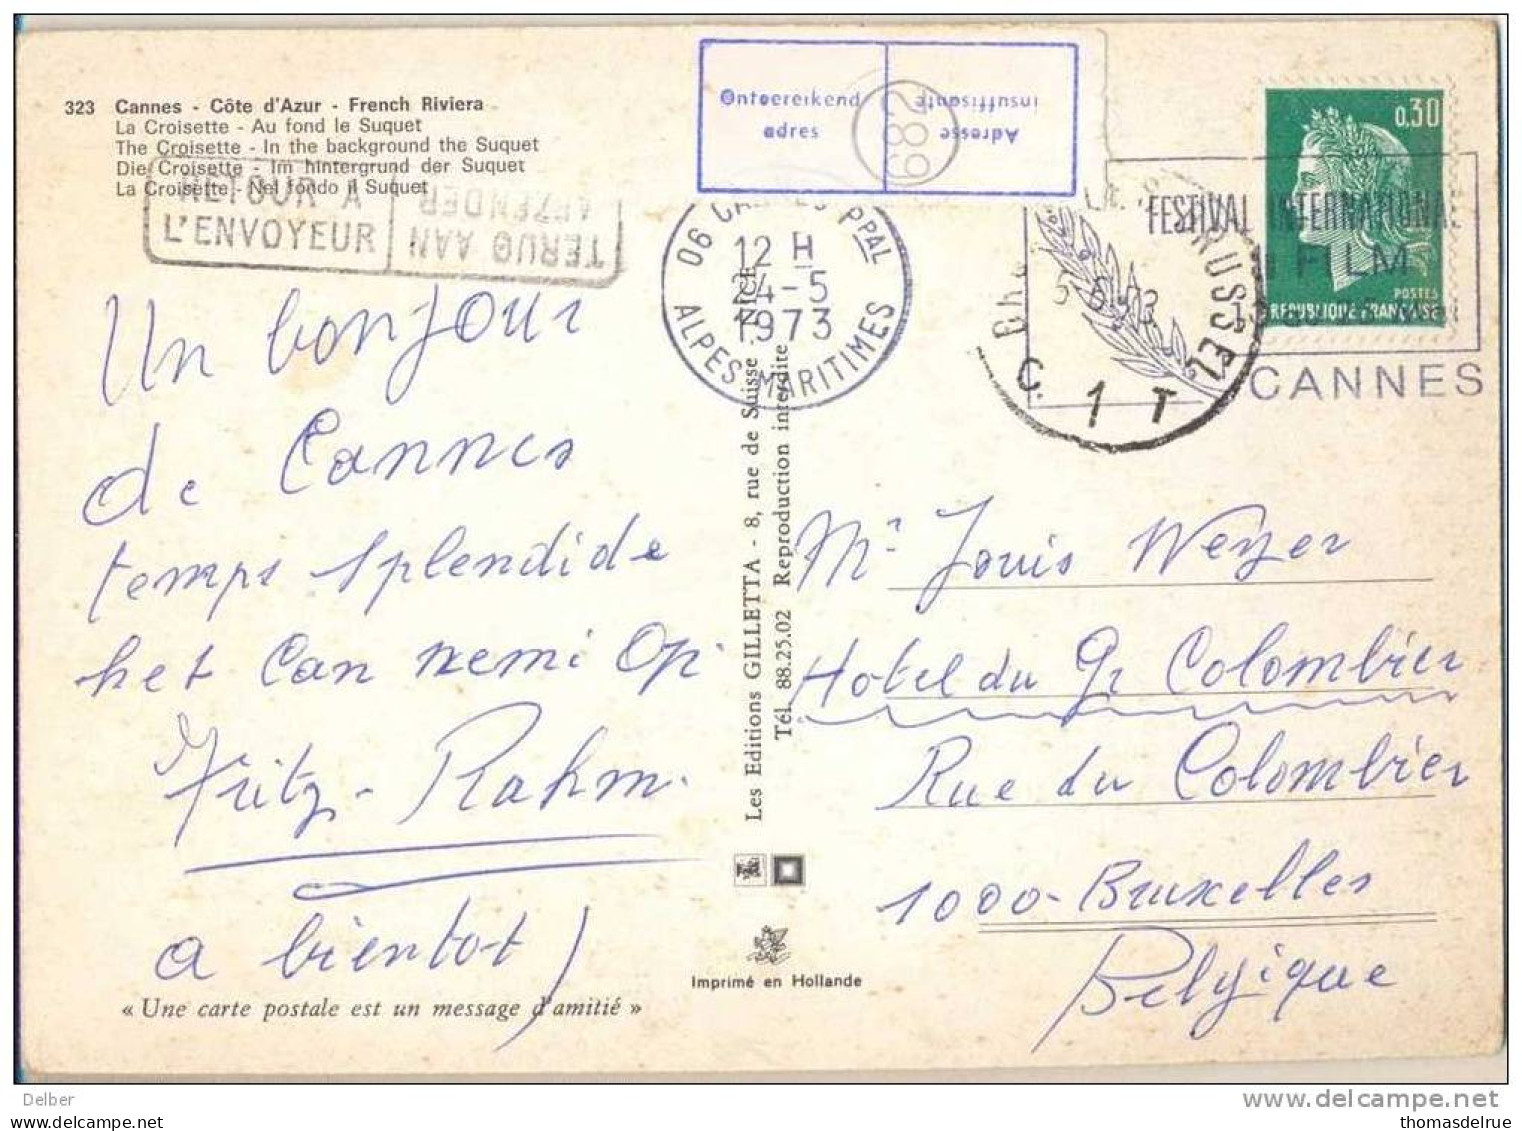 323 Cannes - Côte d'Azur - French Riviera
La Croisette - Au fond le Suquet
The Croisette - In the background the Suquet
Die Croisette - Im hintergrund der Suquet
La Croisette - Nel fondo il Suquet
RETOUR A
L'ENVOYEUR
TERUG AAN
AFZENDER
Ontoereikend
adres
Adresse
insuffisante
289
06 CANNES PPAL
12 H
24-5
1973
ALPES-MARITIMES
FESTIVAL INTERNATIONAL
FILM
CANNES
BRUSSEL
C 1 T
0,30
POSTES
REPUBLIQUE FRANÇAISE
Un bonjour
de Cannes
temps splendide
het can nemi op
Fritz - Rahm.
a bientot)
« Une carte postale est un message d'amitié »
Les Editions GILLETTA - 8, rue de Suisse - NICE
Tél. 88.25.02 Reproduction interdite
Imprimé en Hollande
Mr Louis Weyer
Hotel du Gr Colombier
Rue du Colombier
1000-Bruxelles
Belgique
Delber
delcampe.net
www.delcampe.com
thomasdelrue